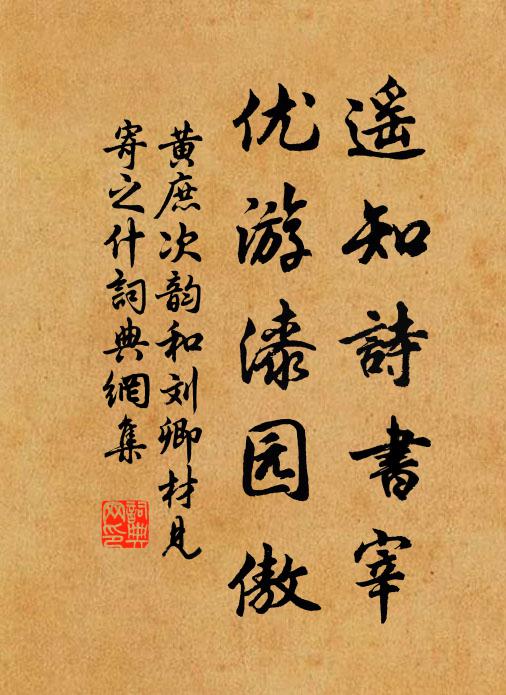 遥知詩書宰
优游漆园傲
黄庶次韵和刘卿材见
寄之什詞典網集
詞典网印